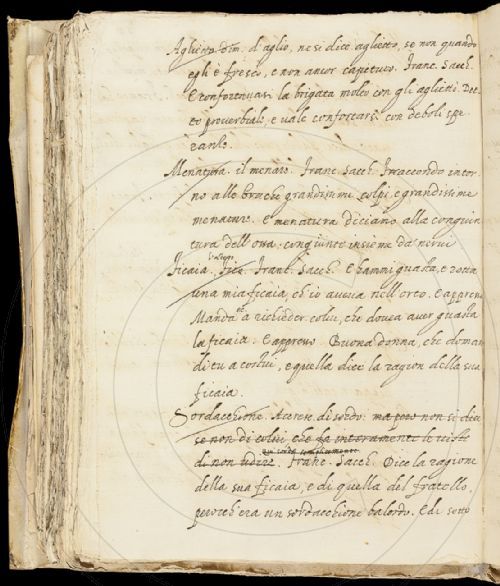 Aglietto. dim. d'aglio, ne si dice aglietto, se non quando
egli è fresco, e non ancor capituto. Franc. Sacch.
E confortavasi la brigata molto con gli aglietti. Det=
to proverbiale, e vale confortarsi con deboli spe
ranze.
Menatura. il menare. Franc. Sacch. Traccondo intor=
no alle brache grandissimi colpi, e grandissime
menature. e menatura diciamo alla congiun
tura dell'ossa. congiunte insieme da nervi
Ficaia. Franc. Sacch. E hammi guasta, e rotta
una mia ficaia, ch'io aveva nell'orto. E appresso
Manda a richieder colui, che dovea aver guasta
la ficaia. E appresso Buona donna, che doman
di tu a costui, e quella dice la ragion della sua
ficaia.
Sordacchione. Accresc. di sordo. ma però non si dice
se non di colui, che fa interamente le viste
di non udire. Franc. Sacch. Dice la ragione
della sua ficaia, e di quella del fratello,
perocch'era un sordacchione balordo. E di sotto